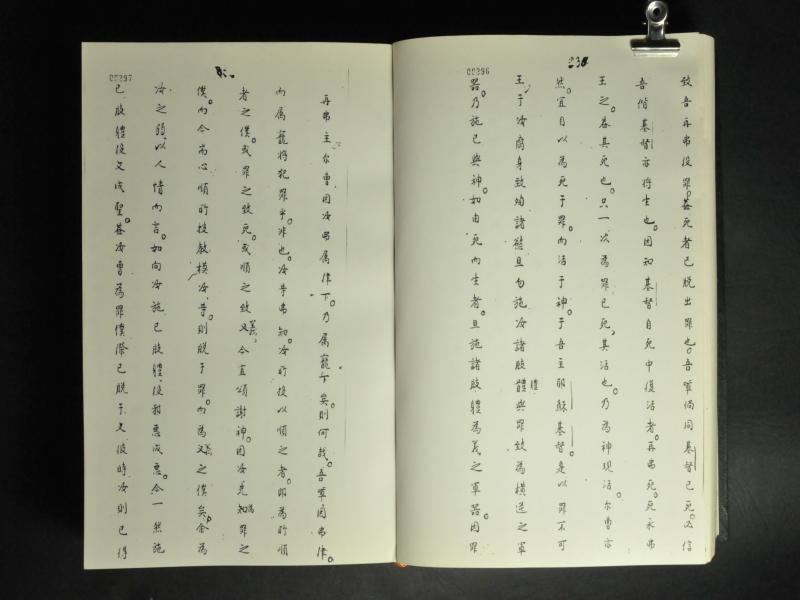 00396
致吾再弗役罪。蓋死者已脱出罪也。吾輩倘同基督已死。必信
吾偕基督亦将生也。因知基督自死中復活者。再弗死。死永弗
王之。蓋其死也。只一次為罪已死。其活也。乃為神現活。尔曹亦
然。宜自以為死于罪。而活于神。于吾主耶穌基督。是以罪不可
王于汝腐身致殉諸慾。且勿施汝諸肢體與罪致為横逆之軍
器。乃施己與神。如由死而生者。且施諸肢體為義之軍器。因罪
00397
再弗主尔曹因汝弗属律下。乃属寵下矣。則何哉。吾輩因弗律。
而属寵将犯罪乎。非也。汝等弗知。汝所投以順之者。即為所順
者之僕。或罪之致死。或順之致義。今宜頌謝神。因汝先為罪之
僕。而今尚心順所授教模汝等。則脱于罪。而為義之僕矣。余為
汝之弱。以人情而言。如向汝施己肢體。役邪惡成惡。今一然施
己肢體役义成聖。蓋汝曹為罪僕際已脱于义。彼時汝則已得